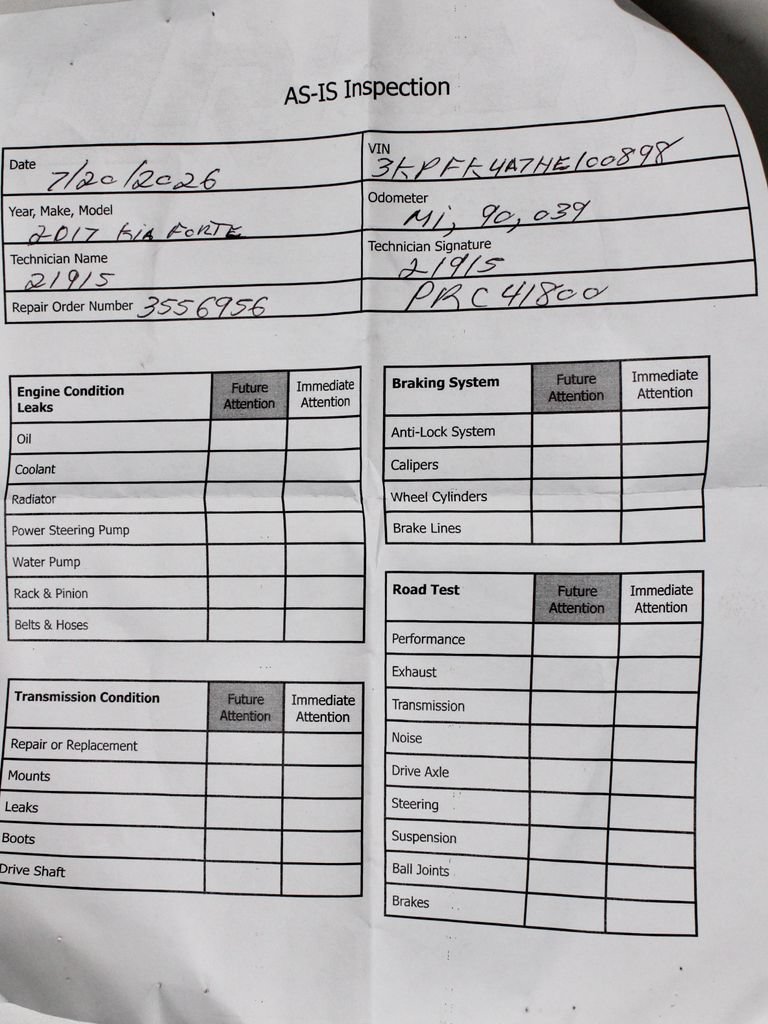 AS-IS Inspection
Date 7/20/2026
VIN 3KPFK4A7HE100898
Year, Make, Model 2017 KIA FORTE
Odometer Mi, 90,039
Technician Name 21915
Technician Signature 21915
Repair Order Number 3556956
PRC 41800
Engine Condition Leaks Future Attention Immediate Attention
Oil
Coolant
Radiator
Power Steering Pump
Water Pump
Rack & Pinion
Belts & Hoses
Transmission Condition Future Attention Immediate Attention
Repair or Replacement
Mounts
Leaks
Boots
Drive Shaft
Braking System Future Attention Immediate Attention
Anti-Lock System
Calipers
Wheel Cylinders
Brake Lines
Road Test Future Attention Immediate Attention
Performance
Exhaust
Transmission
Noise
Drive Axle
Steering
Suspension
Ball Joints
Brakes